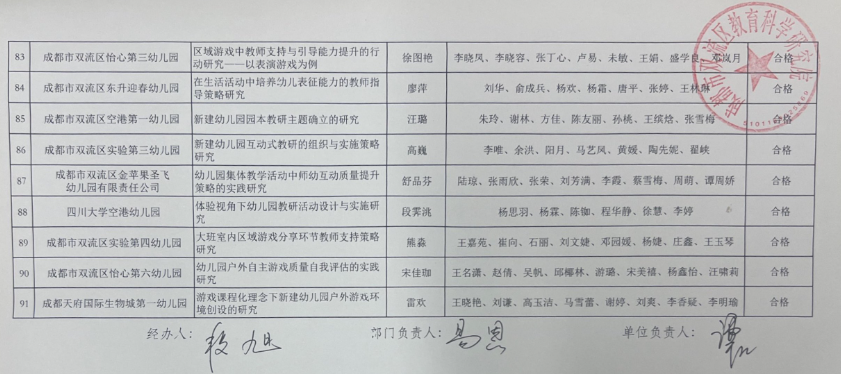 83 成都市双流区怡心第三幼儿园 区域游戏中教师支持与引导能力提升的行动研究——以表演游戏为例 徐图艳 李晓凤、李晓容、张丁心、卢易、未敏、王娟、盛学良、邓岚月 合格
84 成都市双流区东升迎春幼儿园 在生活活动中培养幼儿表征能力的教师指导策略研究 廖萍 刘华、俞成兵、杨欢、杨霜、唐平、张婷、王林琳 合格
85 成都市双流区空港第一幼儿园 新建幼儿园园本教研主题确立的研究 汪璐 朱玲、谢林、方佳、陈友丽、孙桃、王缤焓、张雪梅 合格
86 成都市双流区实验第三幼儿园 新建幼儿园互动式教研的组织与实施策略研究 高巍 李唯、余洪、阳月、马艺凤、黄嫒、陶先妮、翟峡 合格
87 成都市双流区金苹果圣飞幼儿园有限责任公司 幼儿园集体教学活动中师幼互动质量提升策略的实践研究 舒品芬 陆琼、张雨欣、张荣、刘芳满、李霞、蔡雪梅、周萌、谭周娇 合格
88 四川大学空港幼儿园 体验视角下幼儿园教研活动设计与实施研究 段霁洮 杨思羽、杨霖、陈铷、程华静、徐慧、李婷 合格
89 成都市双流区实验第四幼儿园 大班室内区域游戏分享环节教师支持策略研究 熊淼 王嘉苑、崔向、石丽、刘文婕、邓园媛、杨婕、庄鑫、王玉琴 合格
90 成都市双流区怡心第六幼儿园 幼儿园户外自主游戏质量自我评估的实践研究 宋佳珈 王名潇、赵倩、吴帆、邱椰林、游璐、宋美禧、杨鑫怡、汪啸莉 合格
91 成都天府国际生物城第一幼儿园 游戏课程化理念下新建幼儿园户外游戏环境创设的研究 雷欢 王晓艳、刘谦、高玉洁、马雪蕾、谢婷、刘爽、李香疑、李明瑜 合格
经办人： 段旭 部门负责人： 易恩 单位负责人：
成都市双流区教育科学研究院